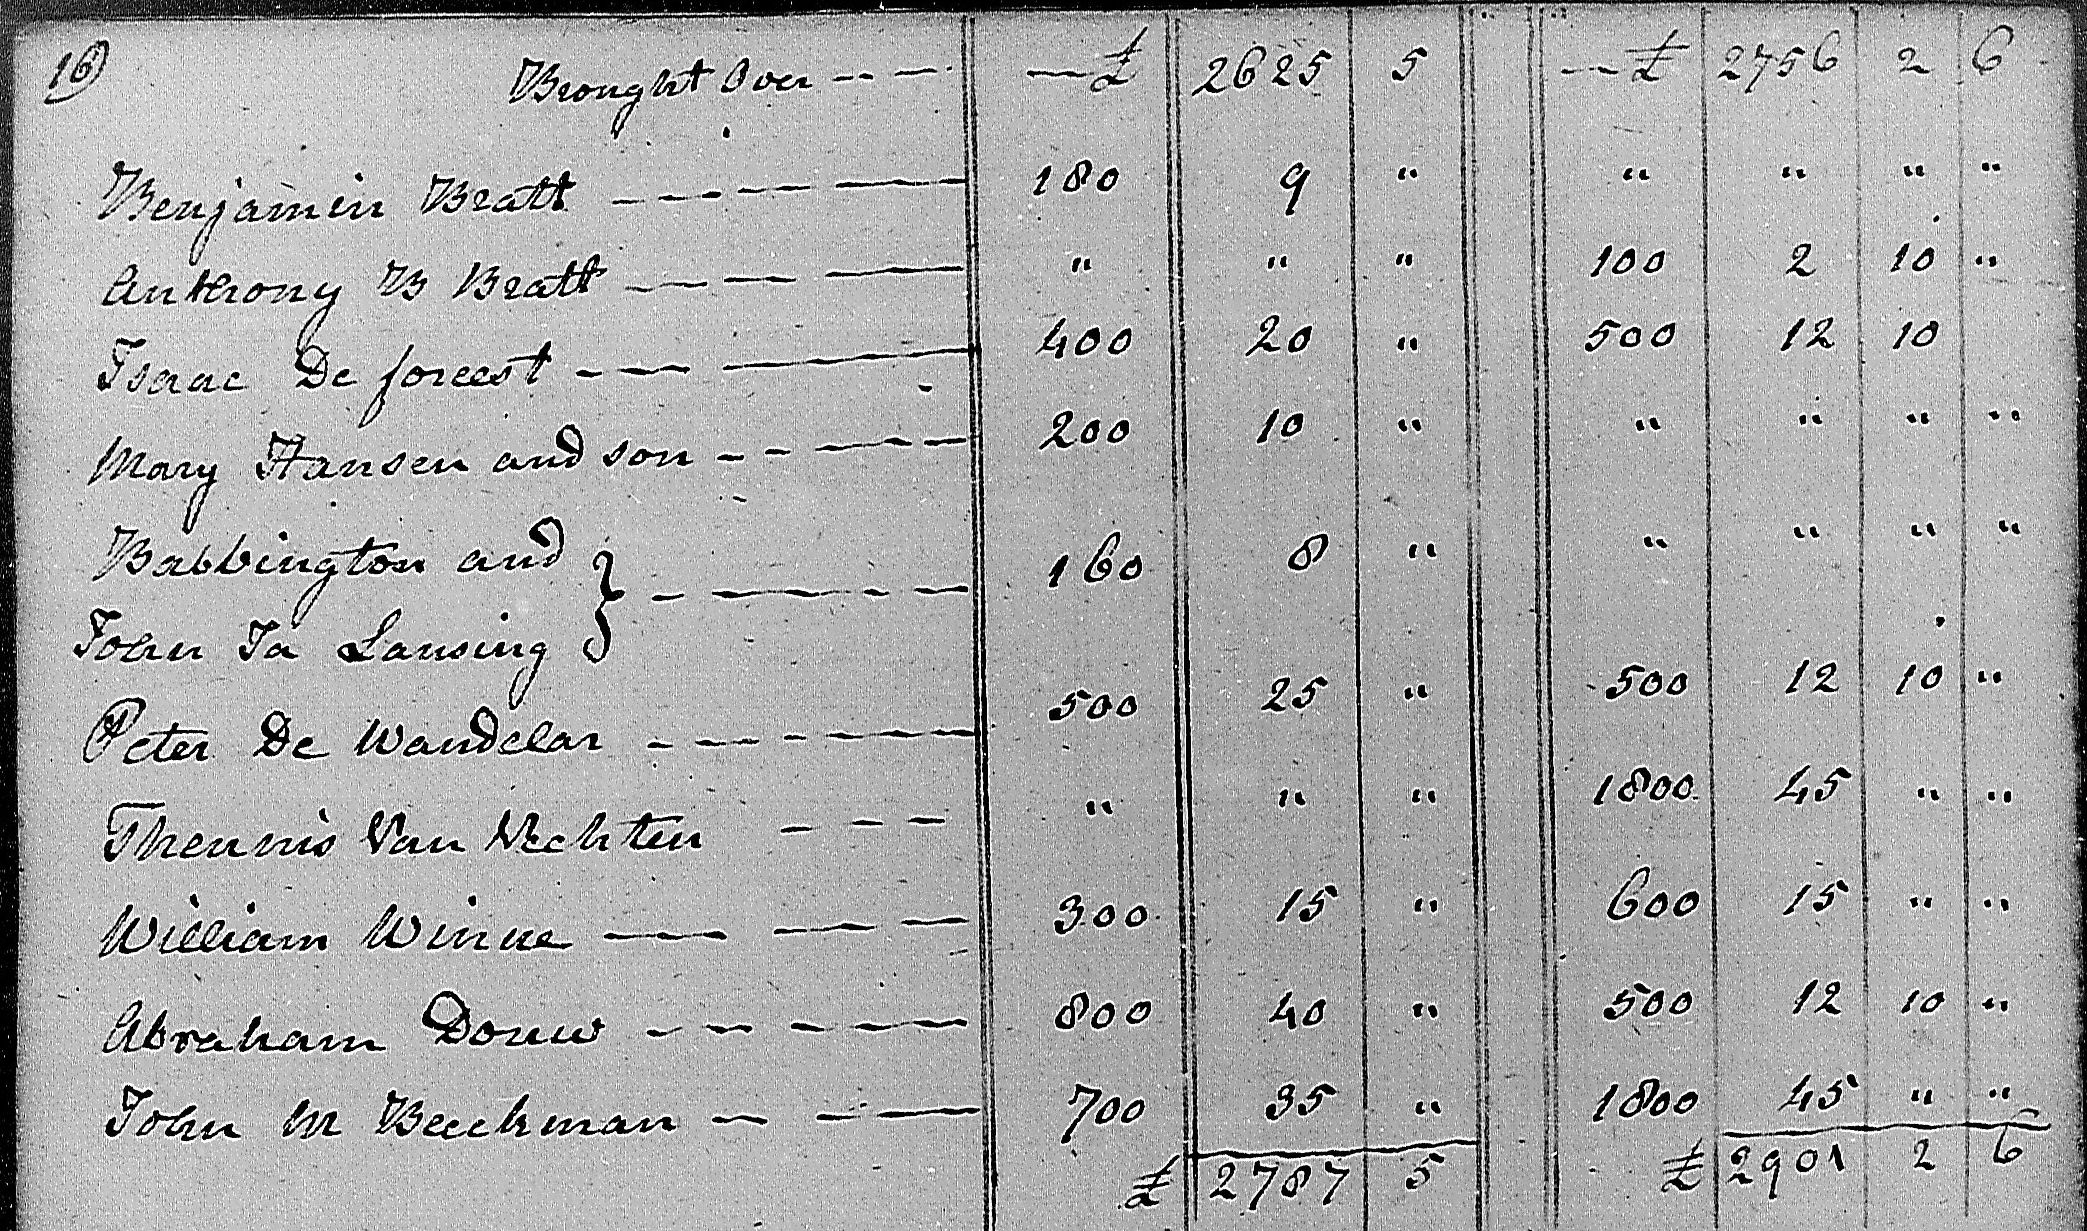 16)
Brought Over — £ 2625 5 — £ 2756 2 6
Benjamin Bratt 180 9 " " " " "
Anthony B Bratt " " " 100 2 10 "
Isaac De foreest 400 20 " 500 12 10
Mary Hansen and son 200 10 " " " " "
Babbington and } 160 8 " " " " "
John Ja Lansing
Peter De Wandelar 500 25 " 500 12 10 "
Theunnis Van Vechten " " " 1800 45 " "
William Winne 300 15 " 600 15 " "
Abraham Douw 800 40 " 500 12 10 "
John M Beeckman 700 35 " 1800 45 " "
£ 2787 5 £ 2901 2 6